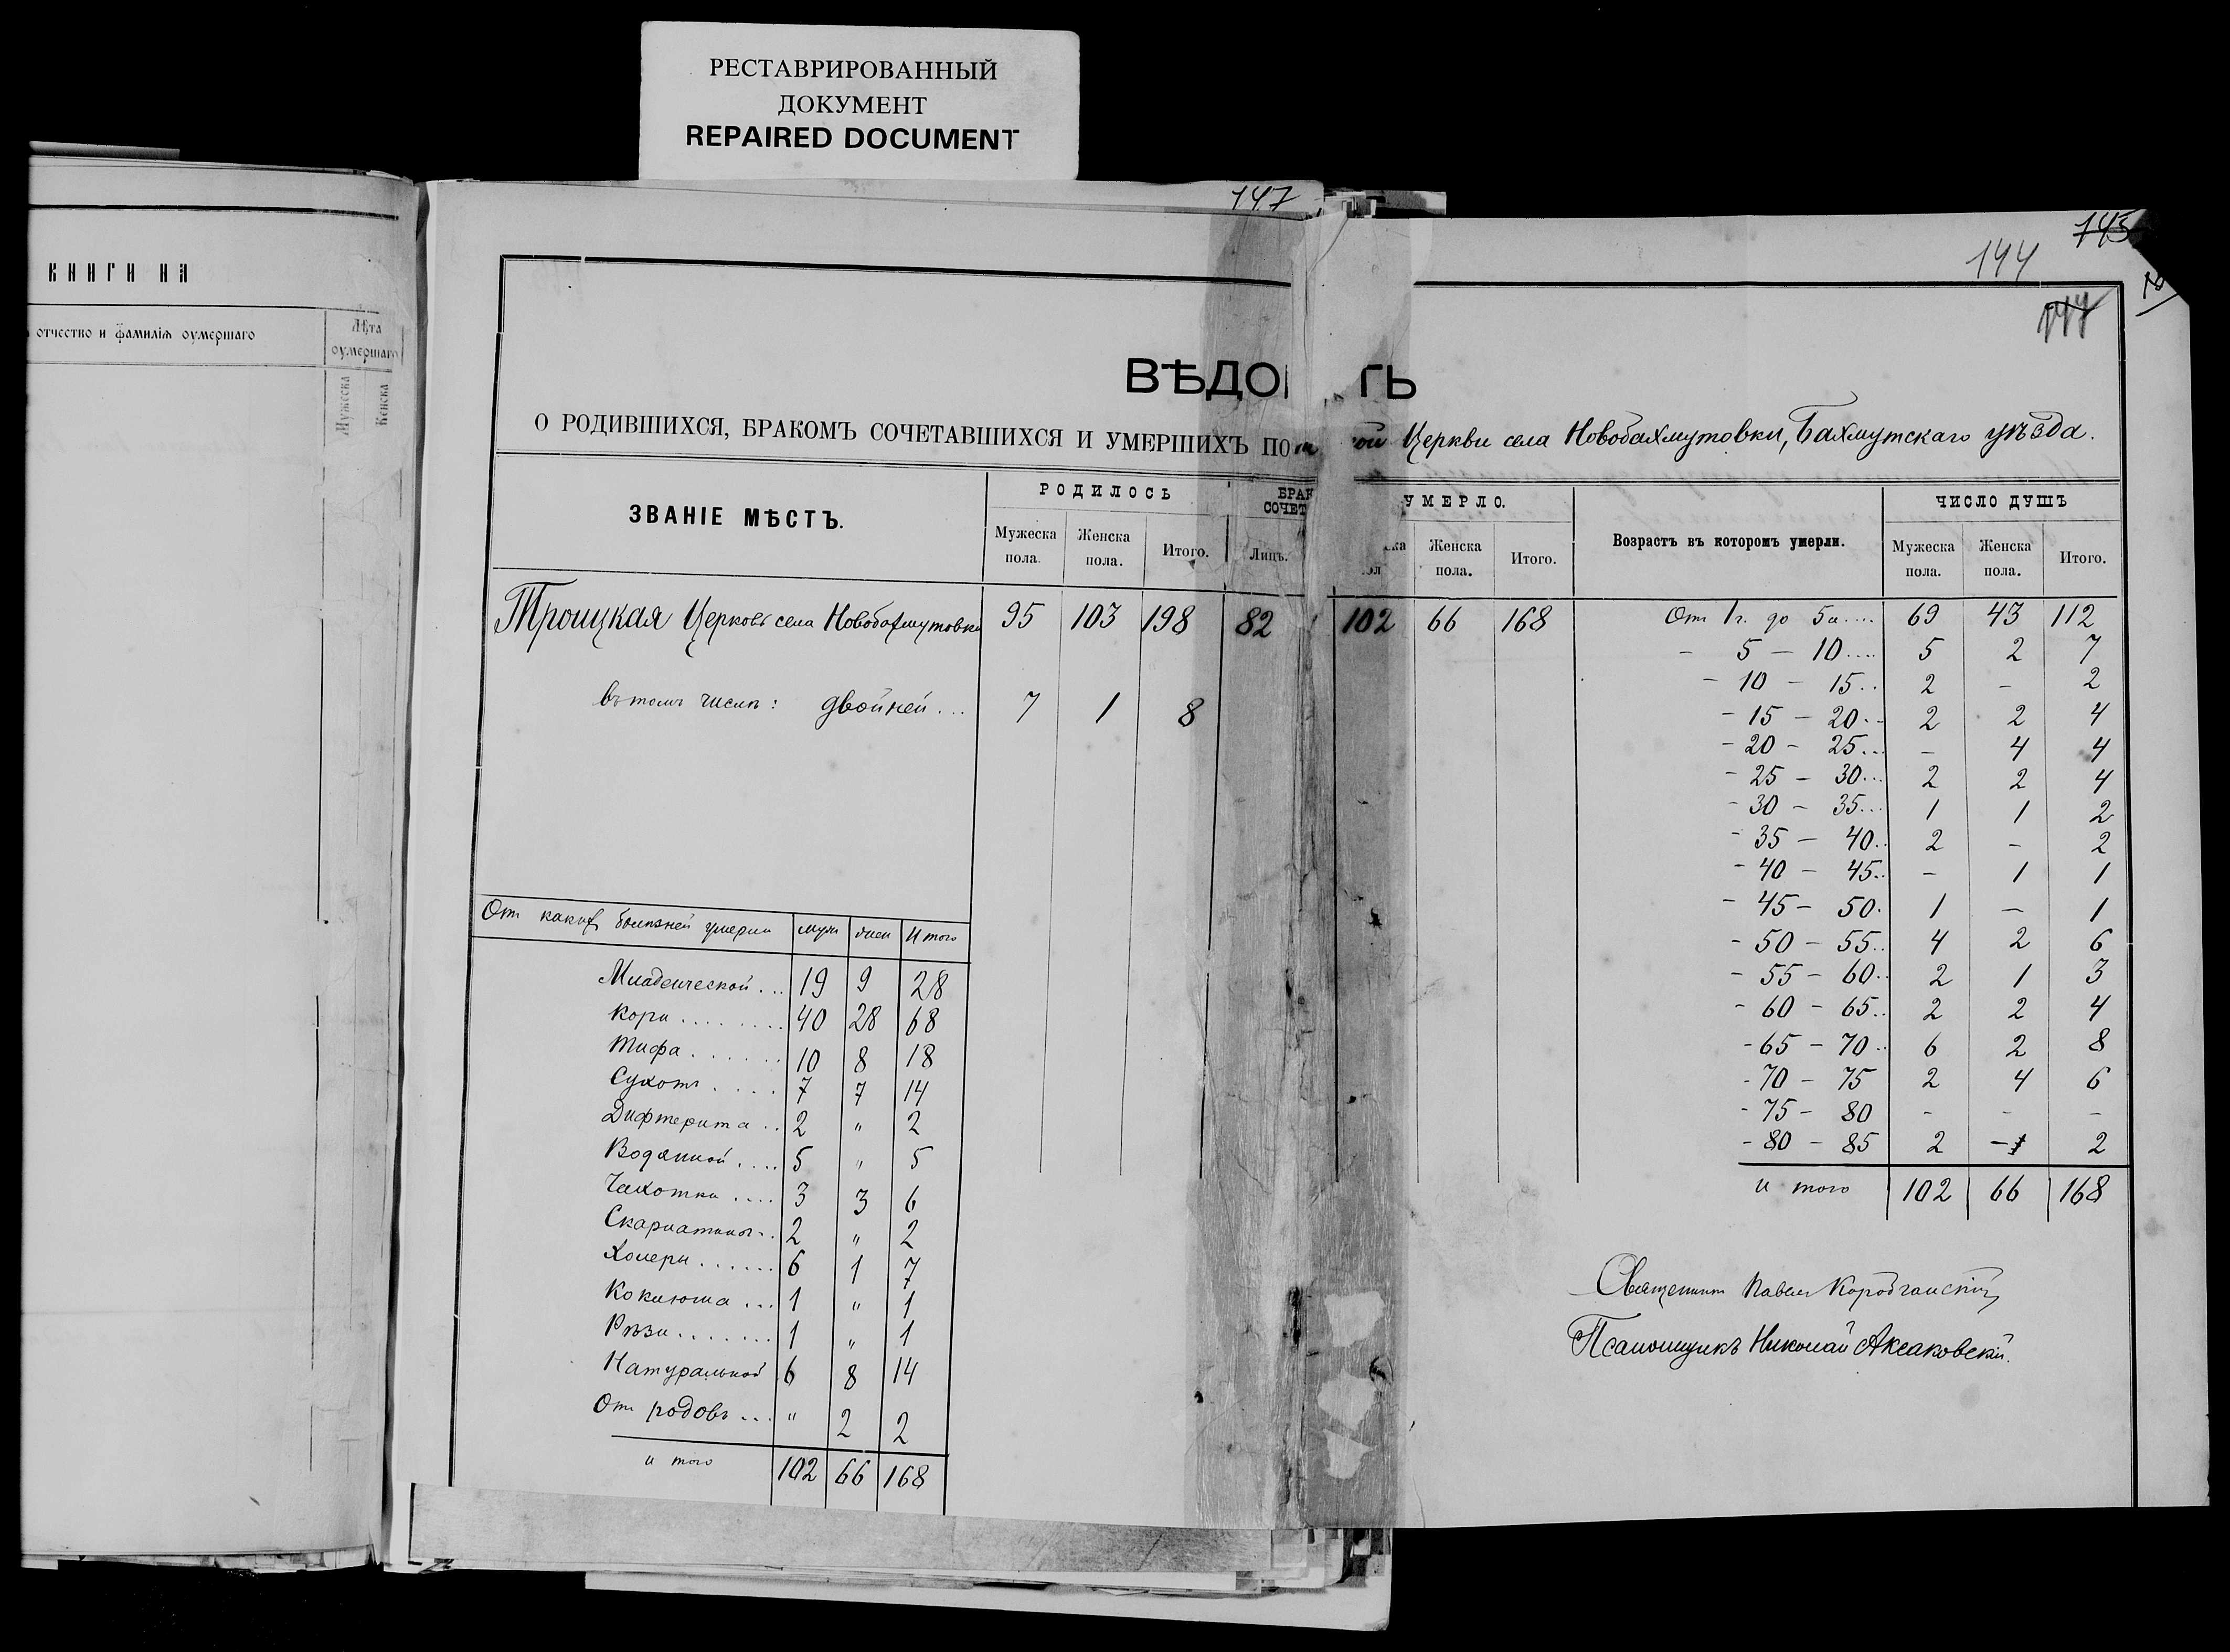 РЕСТАВРИРОВАННЫЙ
ДОКУМЕНТ
REPAIRED DOCUMENT
КНИГИ НА
отчество и фамилія оумершаго
Лѣта
оумершаго
Мужеска
Женска
147
145
144
ВѢДО ТЬ
О РОДИВШИХСЯ, БРАКОМЪ СОЧЕТАВШИХСЯ И УМЕРШИХЪ ПО ой Церкви села Новобахмутовки, Бахмутскаго уѣзда.
ЗВАНІЕ МѢСТЪ. РОДИЛОСЬ БРАК СОЧЕТ УМЕРЛО. Возрастъ въ которомъ умерли. ЧИСЛО ДУШЪ
Мужеска пола. Женска пола. Итого. Лицъ. ска пол Женска пола. Итого. Мужеска пола. Женска пола. Итого.
Троицкая Церковь села Новобахмутовки 95 103 198 82 102 66 168
въ томъ числѣ: двойней ... 7 1 8
От какихъ болѣзней умерли муж жен Итого
Младенческой ... 19 9 28
Кори ........ 40 28 68
Тифа ...... 10 8 18
Сухотъ .... 7 7 14
Дифтерита .. 2 " 2
Водянной .... 5 " 5
Чахотки .... 3 3 6
Скарлатины .. 2 " 2
Холеры ...... 6 1 7
Коклюша ... 1 " 1
Рѣзи ....... 1 " 1
Натуральной 6 8 14
От родовъ ... " 2 2
и того 102 66 168
От 1 г. до 5 л .... 69 43 112
- 5 - 10 .... 5 2 7
- 10 - 15 .. 2 - 2
- 15 - 20 .. 2 2 4
- 20 - 25 ... - 4 4
- 25 - 30 ... 2 2 4
- 30 - 35 ... 1 1 2
- 35 - 40 .. 2 - 2
- 40 - 45 .. - 1 1
- 45 - 50 . 1 - 1
- 50 - 55 .. 4 2 6
- 55 - 60 .. 2 1 3
- 60 - 65 .. 2 2 4
- 65 - 70 .. 6 2 8
- 70 - 75 2 4 6
- 75 - 80 - - -
- 80 - 85 2 - 2
и того 102 66 168
Священник Павел
Псаломщикъ Николай Аксаковскій.